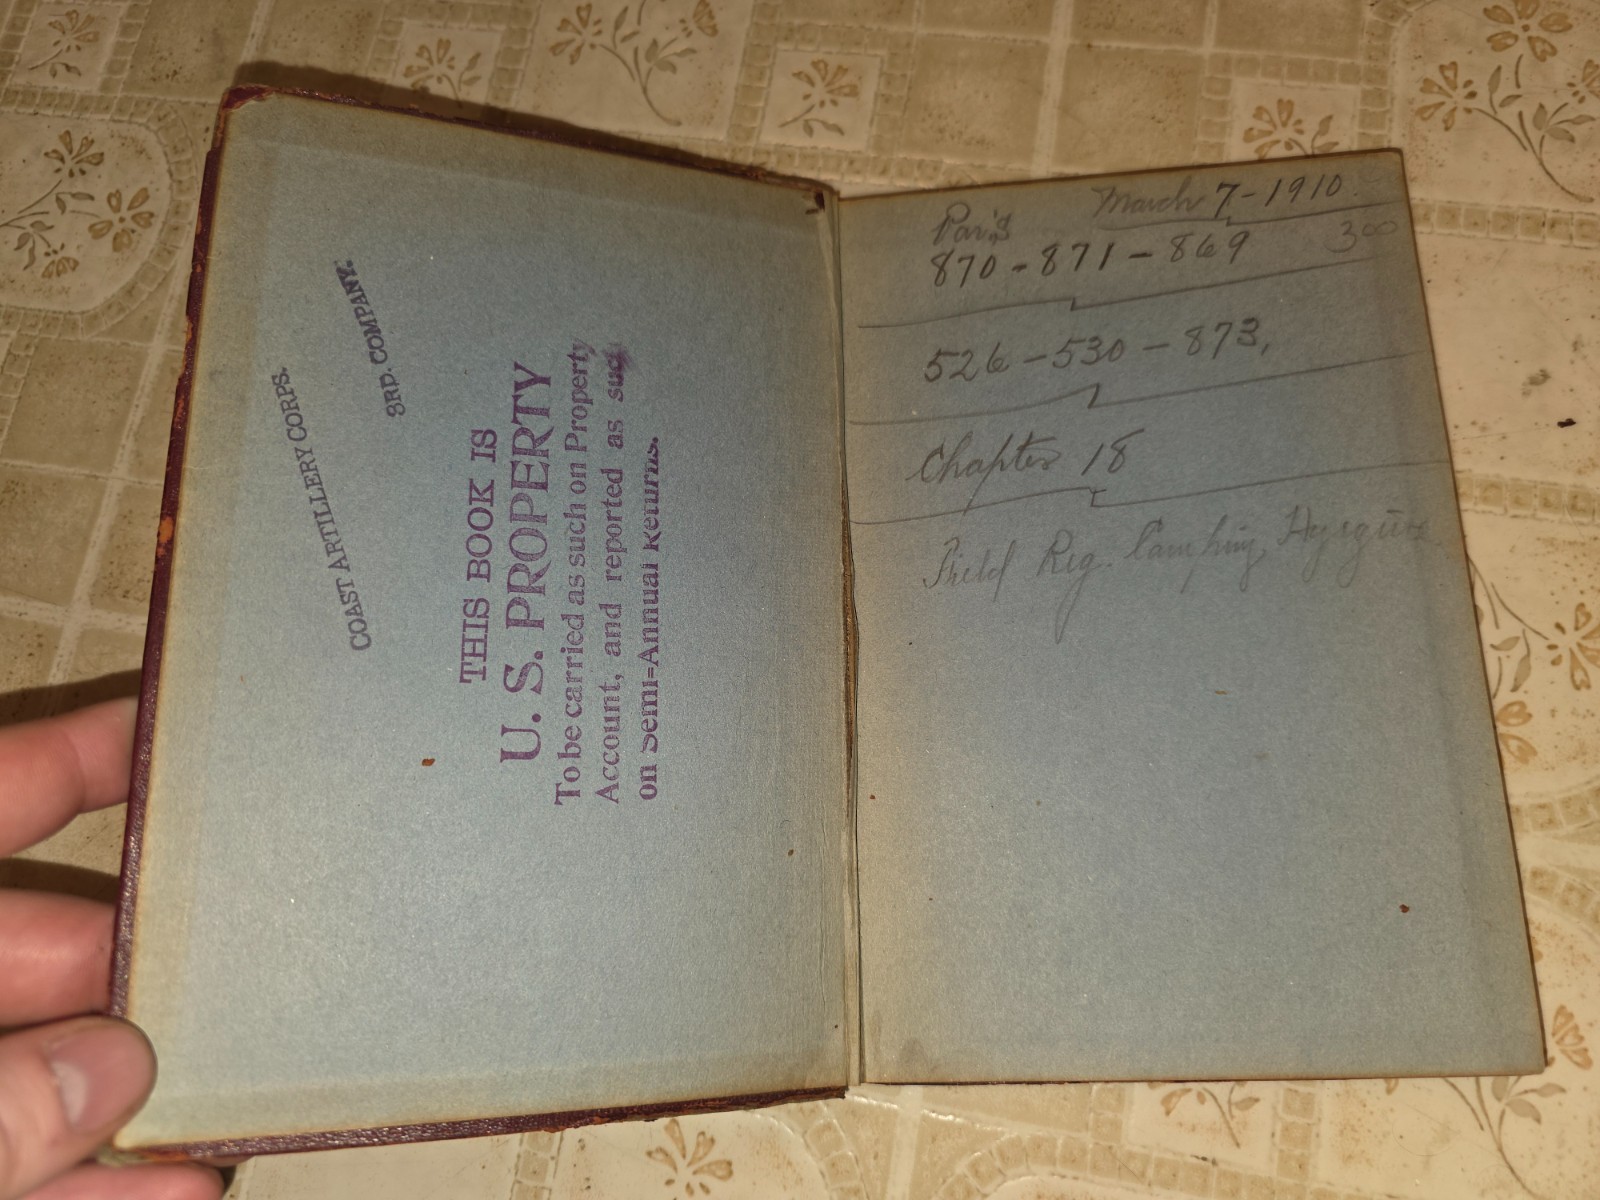 COAST ARTILLERY CORPS.
3RD. COMPANY.
THIS BOOK IS
U. S. PROPERTY
To be carried as such on Property
Account, and reported as such
on Semi=Annual Returns.
March 7-1910.
Par's 300
870 - 871 - 869
526 - 530 - 873,
Chapter 18
Field Reg. Camping, Hygiene